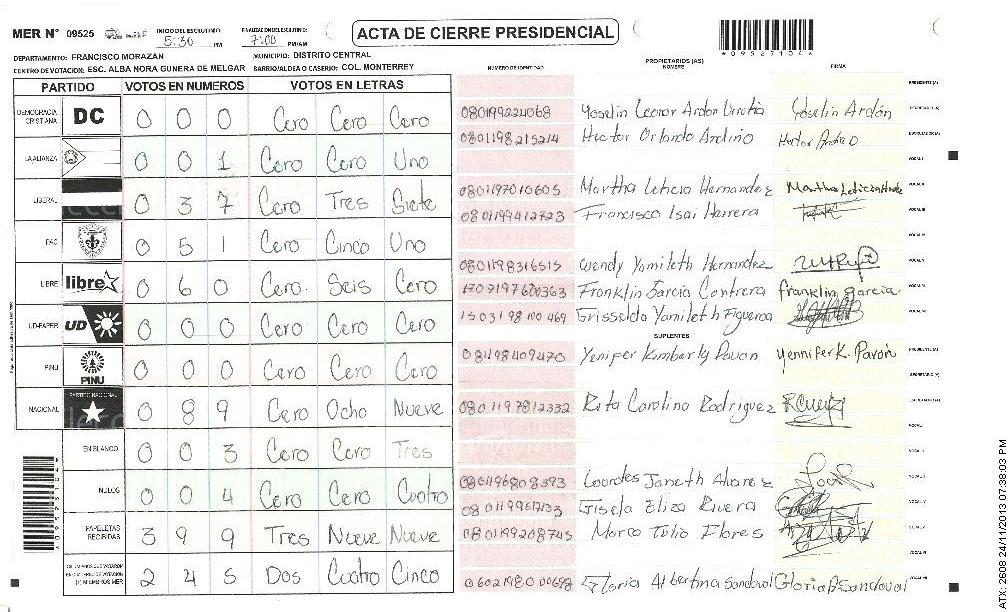 MER N° 09525 INICIO DEL ESCRUTINIO 5:30 PM FINALIZACION DEL ESCRUTINIO: 7:00 PM/AM
ACTA DE CIERRE PRESIDENCIAL
DEPARTAMENTO: FRANCISCO MORAZAN MUNICIPIO: DISTRITO CENTRAL
CENTRO DE VOTACION: ESC. ALBA NORA GUNERA DE MELGAR BARRIO/ALDEA O CASERIO: COL. MONTERREY
NUMERO DE IDENTIDAD PROPIETARIOS (AS) NOMBRE FIRMA
PARTIDO VOTOS EN NUMEROS VOTOS EN LETRAS
DEMOCRACIA CRISTIANA DC 0 0 0 Cero Cero Cero
LA ALIANZA 0 0 1 Cero Cero Uno
LIBERAL 0 3 7 Cero Tres Siete
PAC 0 5 1 Cero Cinco Uno
LIBRE libre 0 6 0 Cero Seis Cero
UD-FAPER UD 0 0 0 Cero Cero Cero
PINU PINU 0 0 0 Cero Cero Cero
NACIONAL PARTIDO NACIONAL 0 8 9 Cero Ocho Nueve
EN BLANCO 0 0 3 Cero Cero Tres
NULOS 0 0 4 Cero Cero Cuatro
PAPELETAS RECIBIDAS 3 9 9 Tres Nueve Nueve
2 4 5 Dos Cuatro Cinco
PRESIDENTE (A)
Yoselin Ardón SECRETARIO (A)
0801198215214 Hector Orlando Andino Hector Andino ESCRUTADOR (A)
VOCAL I
0801197010605 Martha Leticia Hernandez
0801199412723 Francisco Isai Herrera
0801198316515 Wendy Yamileth Hernandez
1709197600363 Franklin Garcia Contrera franklin Garcia
1503198100469 Grisselda Yamileth Figueroa
SUPLENTES
Yenifer Kimberly Pavon Yennifer K. Pavón PRESIDENTE (A)
SECRETARIO (A)
0801197812332 Rita Carolina Rodriguez
VOCAL I
0801196808393 Lourdes Janeth Alvarez
Gisela Eliza Rivera
0801199208745 Marco Tulio Flores
Gloria Albertina Sandoval Gloria A Sandoval
ATX 2608 24/11/2013 07:38:03 PM